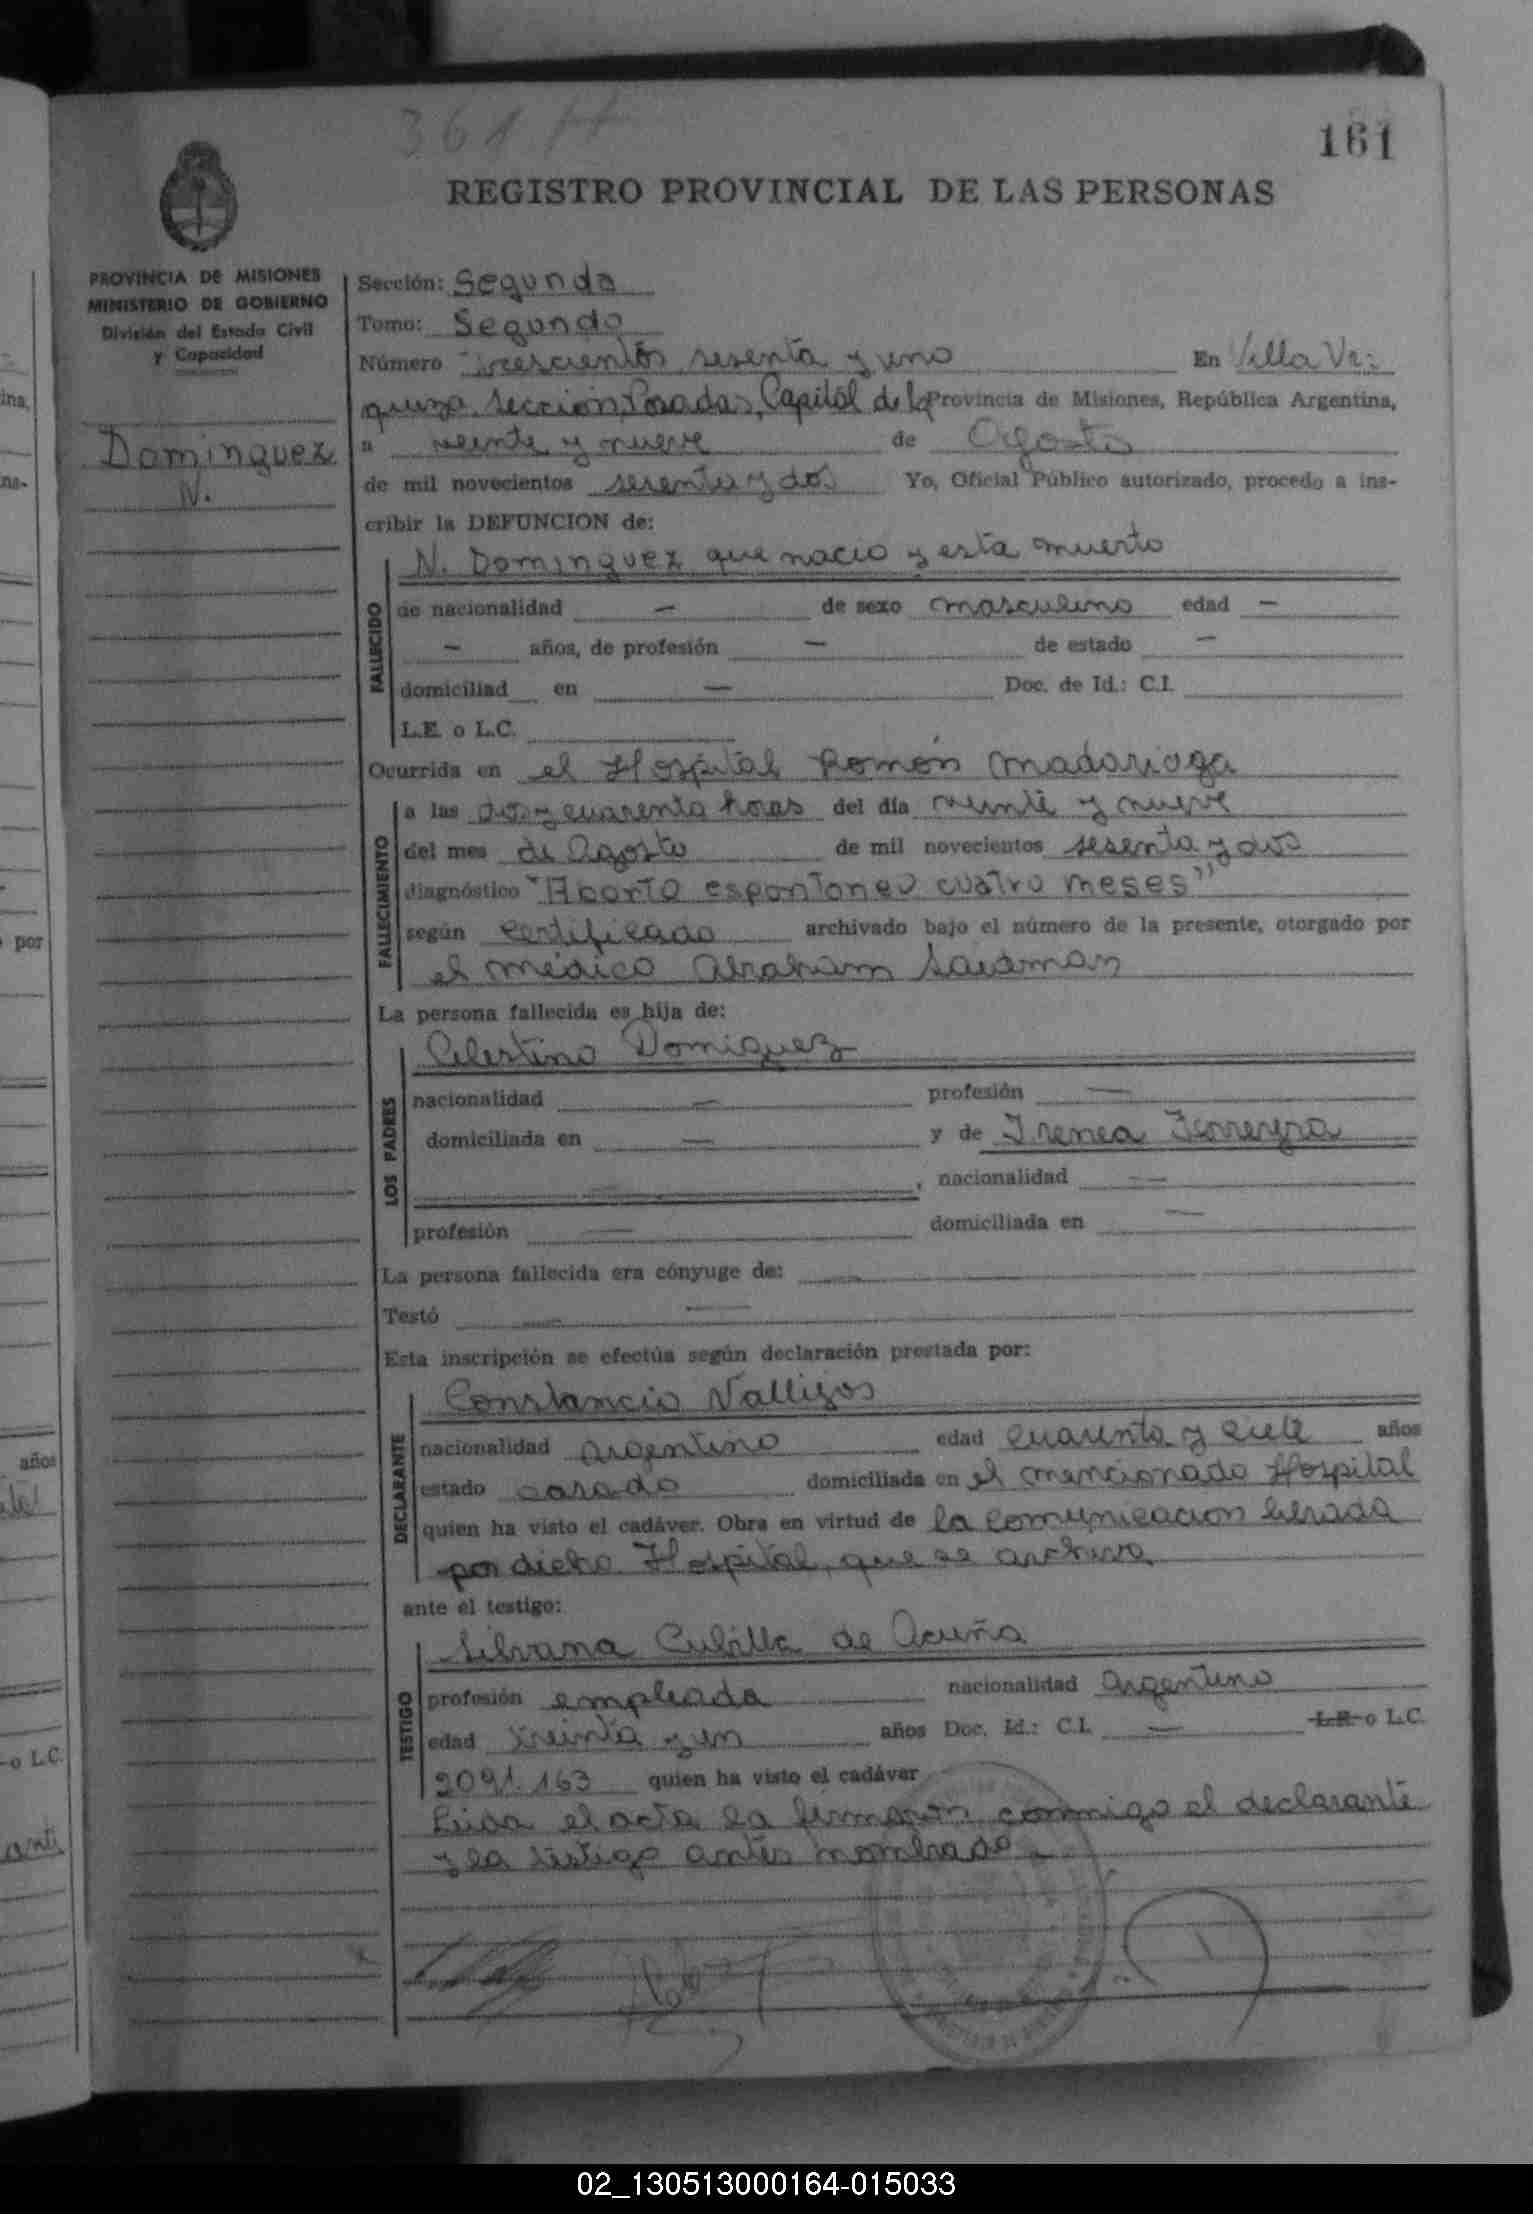 361
161
REGISTRO PROVINCIAL DE LAS PERSONAS
PROVINCIA DE MISIONES
MINISTERIO DE GOBIERNO
División del Estado Civil
y Capacidad
Dominguez
N.
Sección: Segunda
Tomo: Segundo
Número Trescientos sesenta y uno En Villa Ur:
quiza, Sección Posadas, Capital de la Provincia de Misiones, República Argentina,
a veinte y nueve de Agosto
de mil novecientos sesenta y dos Yo, Oficial Público autorizado, procedo a ins-
cribir la DEFUNCION de:
N. Dominguez que nacio y esta muerto
FALLECIDO
de nacionalidad — de sexo masculino edad —
— años, de profesión — de estado —
domiciliad en — Doc. de Id.: C.I.
L.E. o L.C.
Ocurrida en el Hospital Ramón Madariaga
FALLECIMIENTO
a las dos y cuarenta horas del día veinte y nueve
del mes de Agosto de mil novecientos sesenta y dos
diagnóstico "Aborto espontaneo cuatro meses"
según certificado archivado bajo el número de la presente, otorgado por
el médico Abraham Saidman
La persona fallecida es hija de:
LOS PADRES
Celestino Domiguez
nacionalidad — profesión —
domiciliada en — y de Irenea Ferreyra
—, nacionalidad —
profesión — domiciliada en —
La persona fallecida era cónyuge de: —
Testó — —
Esta inscripción se efectúa según declaración prestada por:
DECLARANTE
Constancio Vallejos
nacionalidad argentino edad cuarenta y siete años
estado casado domiciliada en el mencionado Hospital
quien ha visto el cadáver. Obra en virtud de la comunicacion librada
por dicho Hospital, que se archiva
ante el testigo:
TESTIGO
Silvana Cubilla de Acuña
profesión empleada nacionalidad Argentina
edad treinta y un años Doc. Id.: C.I. — L.E. o L.C.
2091.163 quien ha visto el cadáver
Leida el acta la firmaron conmigo el declarante
y la testigo antes nombrado.
02_130513000164-015033